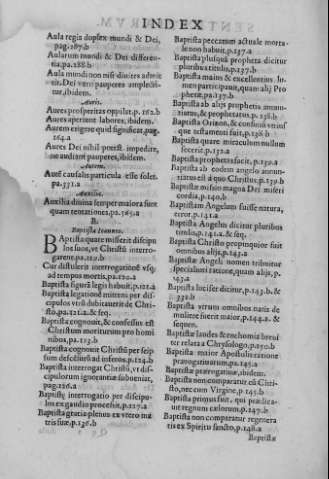 INDEX
Aula regis duplex mundi & Dei,
pag.287.b
Aularum mundi & Dei differen-
tia.pa.288.b
Aula mundi non nisi diuites admit-
tit. Dei vero pauperes amplecti-
tur, ibidem.
Auris.
Aures prosperitas oppilat.p.262.b
Aures aperiunt labores, ibidem.
Aurem erigere quid significat, pag.
264.a
Aures Dei nihil potest impedire,
ne audiant pauperes, ibidem.
Autem.
Autē causalis particula esse solet.
pa.331.a
Auxilia.
Auxilia diuina semper maiora sunt
quam tentationes.pa.265.a
B.
Baptista Ioannes.
BAptista quare miserit discipu
los suos, vt Christū interro-
garent.pa.119.b
Cur distulerit interrogationē vsq;
ad tempus mortis.p.120.a
Baptista figurā legis habuit.p.121.a
Baptista legationē mittens per dis-
cipulos virū dubitauerit de Chri-
sto.pa.121.a.& seq.
Baptista cognouit, & confessus est
Christum moriturum pro homi
nibus.pa.123.b
Baptista cognouit Christū per seip
sum descēsurū ad inferos.p.124.b
Baptista interrogat Christū, vt dis-
cipulorum ignorantiæ subueniat,
pag.126.a
Baptistę interrogatio per discipu-
los ex gaudio processit.p.127.a
Baptista gratia plenus ex vtero ma
tris suæ.p.136.b
Baptista peccatum actuale morta-
le non habuit.p.137.a
Baptista plusquā propheta dicitur
pluribus titulis.p.137.b
Baptista maius & excellentius lu-
men participauit, quam alij Pro
phetæ.pa.137.b
Baptista ab alijs prophetis annun-
tiatus, & prophetatus.p.138.b
Baptista Orizon, & confinius vtrius
que testamenti fuit.p.138.b
Baptista quare miraculum nullum
fecerit.p.152.a
Baptista prophetis facit.p.139.a
Baptista ab eodem angelo annun-
tiatus est à quo Christus.p.139.b
Baptistæ missio magna Dei miseri
cordia.p.140.b
Baptistam Angelum fuisse natura,
error.p.141.a
Baptista Angelus dicitur pluribus
titulis.p.141.a.& seq.
Baptista Christo propinquior fuit
omnibus alijs.p.143.a
Baptistæ Angeli nomen tribuitur
speciali ratione, quam alijs.p.
143.a
Baptista lucifer dicitur.p.143.b.&
332.b
Baptista vtrum omnibus natis de
muliere fuerit maior.p.144.a.&
sequen.
Baptistæ laudes & encomia breui
ter relata a Chrysologo.p.250.b
Baptistæ maior Apostolis ratione
præsagitiarum.pa.145.a
Baptistæ prærogatiuæ, ibidem.
Baptista non comparatur cū Chri-
sto, nec cum Virgine.p.146.b
Baptista primus fuit, qui prædica-
uit regnum cælorum.p.147.b
Baptista non comparatur regenera
tis ex Spiritu sancto.p.148.a
Baptistæ